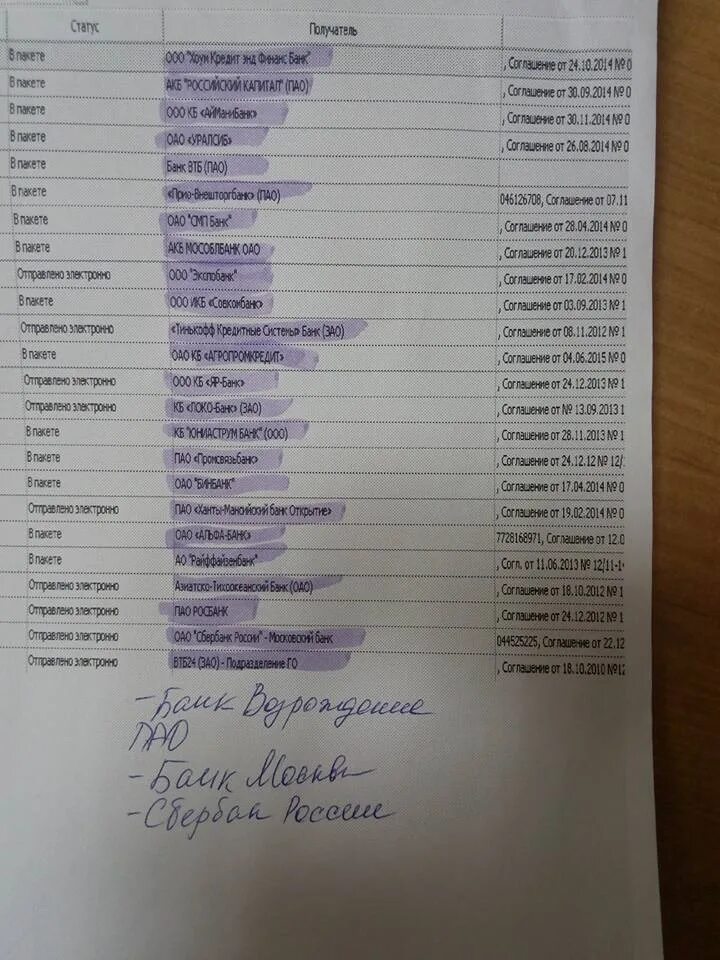 Статус Получатель
В пакете ООО "Хоум Кредит энд Финанс Банк" , Соглашение от 24.10.2014 № 0
В пакете АКБ "РОССИЙСКИЙ КАПИТАЛ" (ПАО) , Соглашение от 30.09.2014 № 0
В пакете ООО КБ «АйМаниБанк» , Соглашение от 30.11.2014 № 0
В пакете ОАО «УРАЛСИБ» , Соглашение от 26.08.2014 № 0
В пакете Банк ВТБ (ПАО)
В пакете «Прио-Внешторгбанк» (ПАО) 046126708, Соглашение от 07.11
В пакете ОАО "СМП Банк" , Соглашение от 28.04.2014 № 0
В пакете АКБ МОСОБЛБАНК ОАО , Соглашение от 20.12.2013 № 1
Отправлено электронно ООО "Экспобанк" , Соглашение от 17.02.2014 № 0
В пакете ООО ИКБ «Совкомбанк» , Соглашение от 03.09.2013 № 1
Отправлено электронно «Тинькофф Кредитные Системы» Банк (ЗАО) , Соглашение от 08.11.2012 № 1
В пакете ОАО КБ «АГРОПРОМКРЕДИТ» , Соглашение от 04.06.2015 № 0
Отправлено электронно ООО КБ «ЯР-Банк» , Соглашение от 24.12.2013 № 1
Отправлено электронно КБ «ЛОКО-Банк» (ЗАО) , Соглашение от № 13.09.2013 1
В пакете КБ "ЮНИАСТРУМ БАНК" (ООО) , Соглашение от 28.11.2013 № 1
В пакете ПАО «Промсвязьбанк» , Соглашение от 24.12.12 № 12/
В пакете ОАО "БИНБАНК" , Соглашение от 17.04.2014 № 0
Отправлено электронно ПАО «Ханты-Мансийский банк Открытие» , Соглашение от 19.02.2014 № 0
В пакете ОАО «АЛЬФА-БАНК» 7728168971, Соглашение от 12.0
В пакете АО "Райффайзенбанк" , Согл. от 11.06.2013 № 12/11-1
Отправлено электронно Азиатско-Тихоокеанский Банк (ОАО) , Соглашение от 18.10.2012 № 1
Отправлено электронно ПАО РОСБАНК , Соглашение от 24.12.2012 № 1
Отправлено электронно ОАО "Сбербанк России" - Московский банк 044525225, Соглашение от 22.12
Отправлено электронно ВТБ24 (ЗАО) - Подразделение ГО , Соглашение от 18.10.2010 №12
- Банк Возрождение
ПАО
- Банк Москвы
- Сбербан России